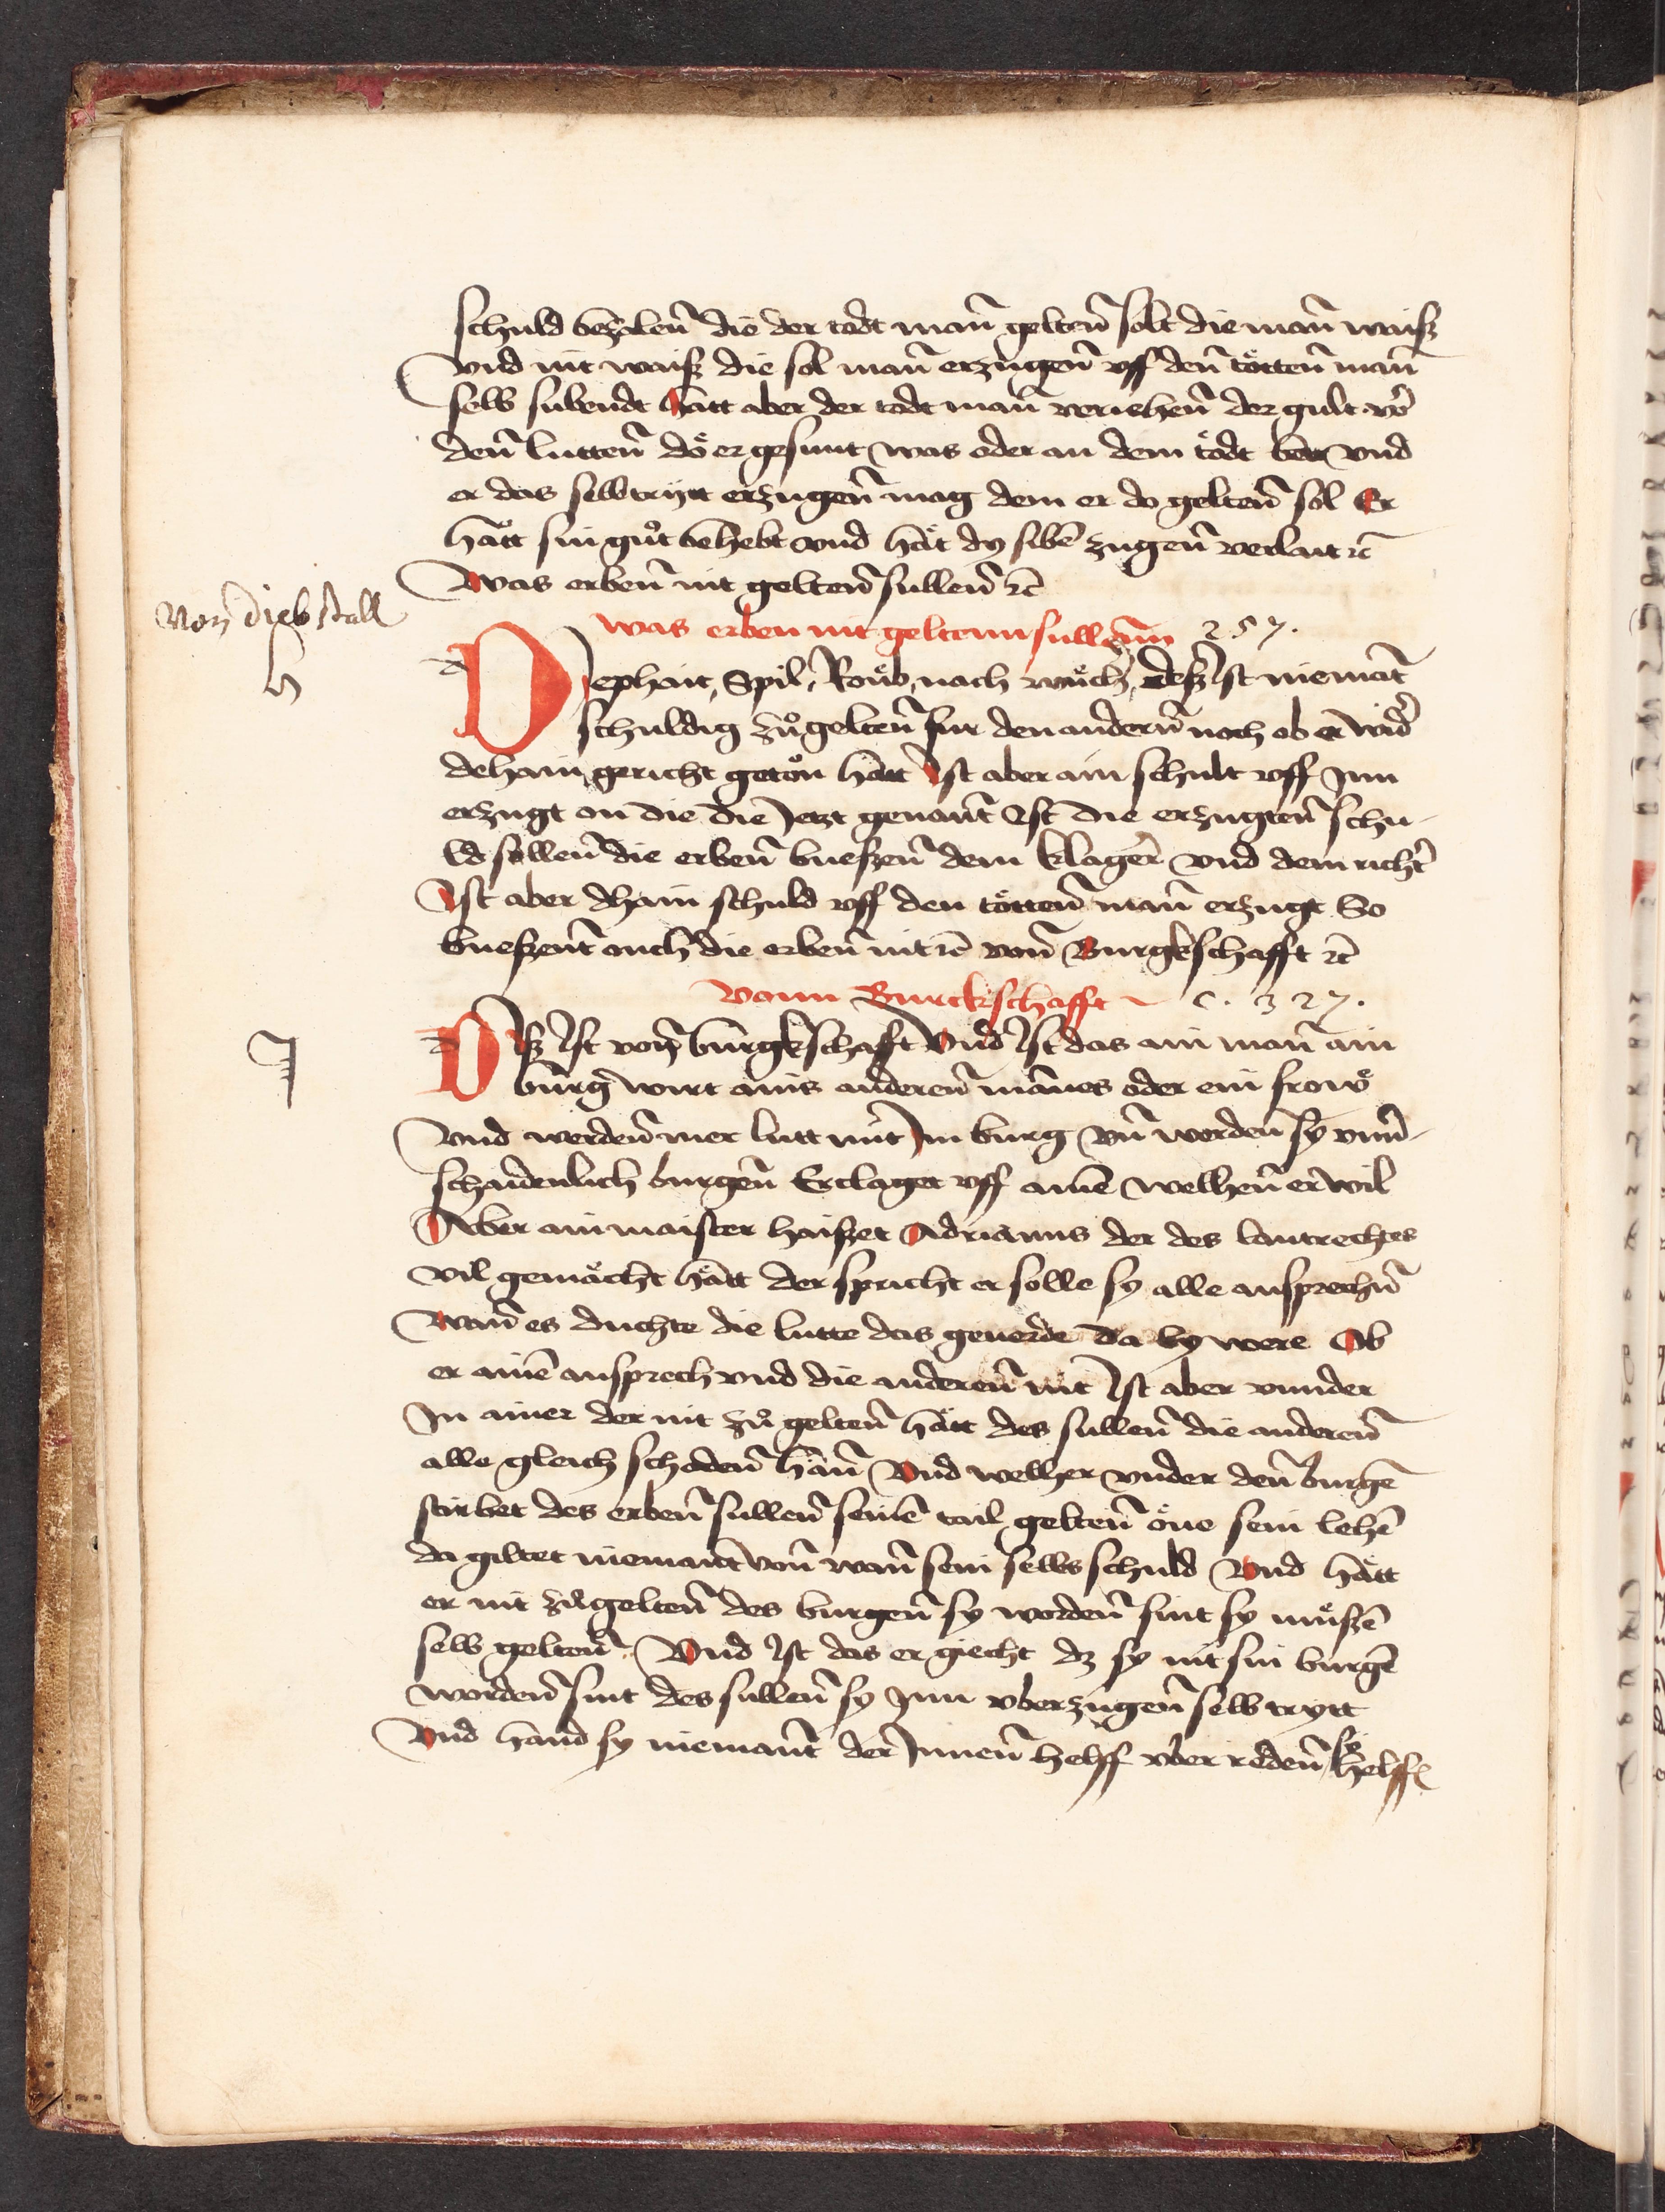 schuld bezalen̄ die der todt man̄ gelten̄ solt die man̄ waisz
vnd nit waisz die sol man̄ erzúgen̄ vff den̄ tötten̄ man̄
selb subendt Hatt aber der todt man̄ veriehen̄ der gult vo᷑
den̄ lutten̄ dö er gesunt was oder an dem tödt bett vnd
er das selb trytt erzugen̄ mag dem er do gelten̄ sol Er
hätt sin gůt behebt vnd hät dy sibē zugen̄ verlait ꝛc̄
Was erben̄ nit gelten̄ sullen̄ ꝛc̄
Von diebstall
was erben nit geltenn sullenn 257.
h
Diephait, Spil, Roub, nach wůch᷑, desz Ist niemāt
schuldig zů gelten̄ fur den andern̄ noch ob er wid᷑
dehain gericht getön hatt Ist aber ain schult vff Inn
erzugt on die die Jetzt genant̄ Ist die erzugten̄ schu-
ld sollen̄ die erben̄ bueszen̄ dem klager᷑ vnd dem richt᷑
Ist aber dhain schuld vff den tötten̄ man̄ erzugt So
bueszent̄ ouch die erben̄ nit ꝛc̄ von̄ Burgkschafft ꝛc̄
Vonn Burckschafft c. 327.
J
Disz Ist von̄ burgkschafft Vnd Ist das ain man̄ ain
búrg wirt ains anderen̄ mānes oder ein frowͤ
Vnd werden̄ mer lutt mit Im burg vn̄ worden̄ sy vnn᷑-
schaidenlich burgen̄ Er claget vff ainē welhen̄ er wil
Aber ain maister haiszet Adrianus der des lantrechtes
vil gemächt hätt der spricht er solle sy alle ansprechn̄
Wan̄ es duchte die lutte das geuerde da by were Ob
er ainē ansprech vnd die anderen̄ nit Ist aber vnnder
In ainer der nit zů gelten̄ hätt des sullen̄ die anderen̄
alle gleich schaden̄ han̄ Vnd welher vnder den̄ burgē
stirbet des erben̄ sullen̄ seinē tail gelten̄ öne sein lehē
da giltet niemant̄ von̄ wan̄ sein selbs schuld Vnd hätt
er nit zů gelten̄ des burgen̄ sy worden̄ sint sy müszē
selb gelten̄ Vnd Ist das er giecht dz sy nit sin burgē
worden̄ sint des sullen̄ sy Inn vberzugen̄ selb trytt
Vnd hand sy niemant̄ der Innen̄ helff vber reden̄ so helff